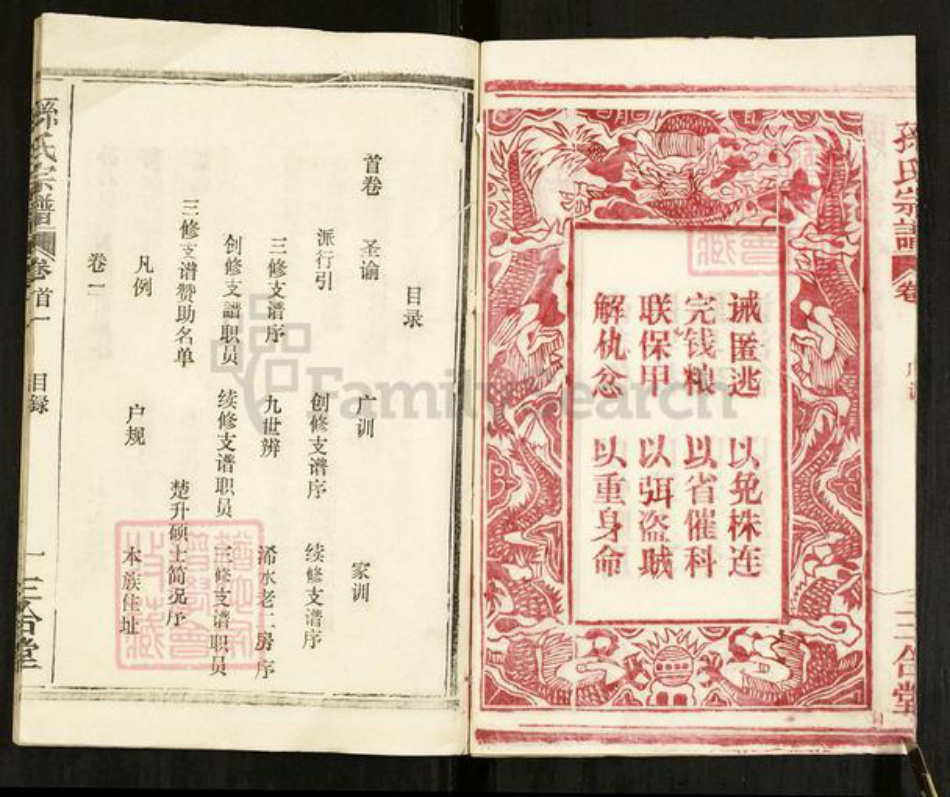 孙氏宗谱 卷 三合堂
诫匿逃 以免株连
完钱粮 以省催科
联保甲 以弭盗贼
解仇忿 以重身命
目录
首卷 圣谕 广训 家训
派行引 创修支谱序 续修支谱序
三修支谱序 九世辨 浠水老二房序
创修支譜职员 续修支谱职员 三修支谱职员
三修支谱赞助名单 楚升硕士简况序
凡例 户规 本族住址
卷一
孫氏宗譜 卷首一 目録 一 三合堂
FamilySearch